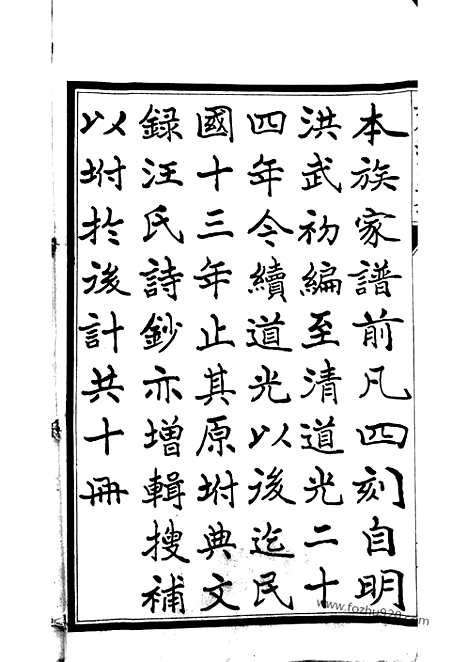 本族家譜前凡四刻自明
洪武初編至清道光二十
四年今續道光以後迄民
國十三年止其原坿典文
録汪氏詩鈔亦增輯搜補
以坿於後計共十冊
www.fozhu920.com